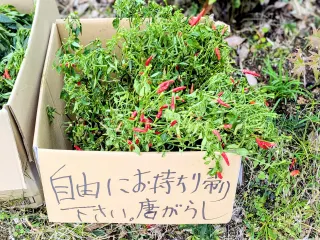 自由にお持ち帰り
下さい。唐がらし